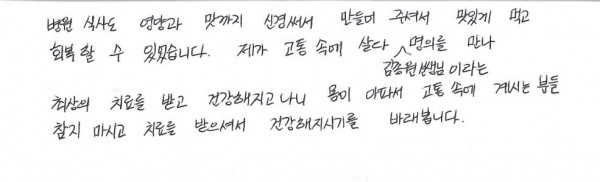 병원 식사도 영양과 맛까지 신경써서 만들어 주셔서 맛있게 먹고
회복 할 수 있었습니다. 제가 고통 속에 살다 ^ 명의를 만나
김종원 선생님 이라는
최상의 치료를 받고 건강해지고 나니 몸이 아파서 고통 속에 계시는 분들
참지 마시고 치료를 받으셔서 건강해지시기를 바래봅니다.